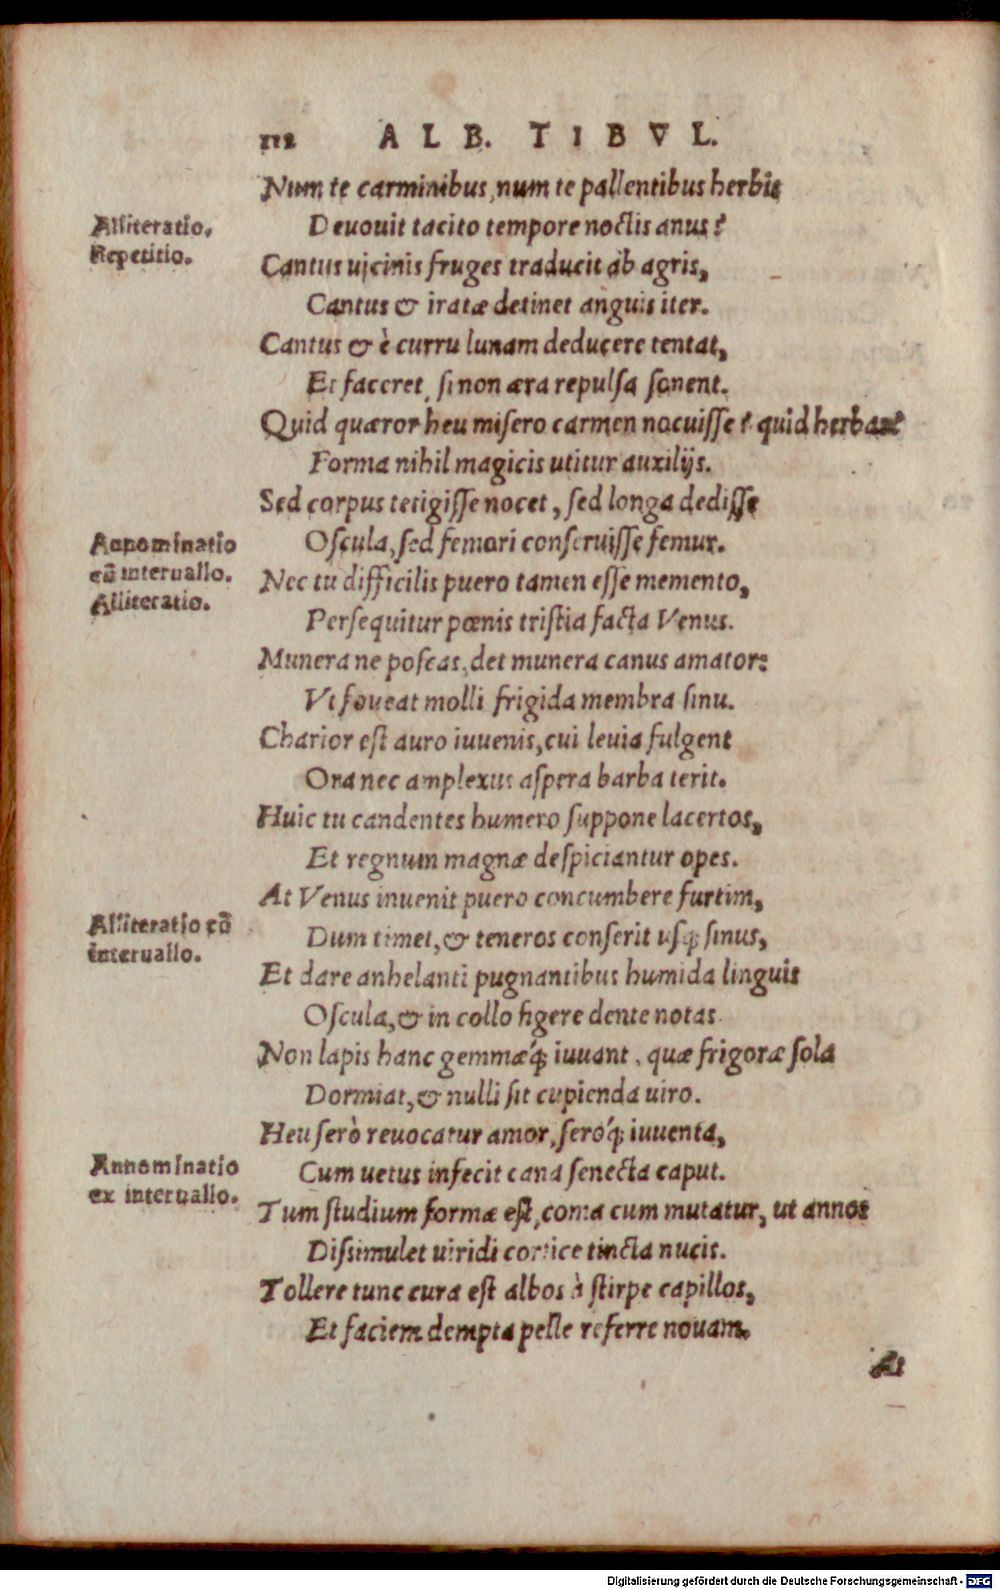 112 ALB. TIBVL.
Num te carminibus, num te pallentibus herbis
Alliteratio.
Repetitio.
Deuouit tacito tempore noctis anus?
Cantus uicinis fruges traducit ab agris,
Cantus & iratæ detinet anguis iter.
Cantus & è curru lunam deducere tentat,
Et faceret, si non æra repulsa sonent.
Quid quæror heu misero carmen nocuisse? quid herbas?
Forma nihil magicis utitur auxilijs.
Sed corpus tetigisse nocet, sed longa dedisse
Annominatio
cū interuallo.
Alliteratio.
Oscula, sed femori conseruisse femur.
Nec tu difficilis puero tamen esse memento,
Persequitur pœnis tristia facta Venus.
Munera ne poscas, det munera canus amator:
Vt foueat molli frigida membra sinu.
Charior est auro iuuenis, cui leuia fulgent
Ora nec amplexus aspera barba terit.
Huic tu candentes humero suppone lacertos,
Et regnum magnæ despiciantur opes.
At Venus inuenit puero concumbere furtim,
Alliteratio cū
interuallo.
Dum timet, & teneros conserit usq; sinus,
Et dare anhelanti pugnantibus humida linguis
Oscula, & in collo figere dente notas.
Non lapis hanc gemmæ'q; iuuant, quæ frigoræ sola
Dormiat, & nulli sit cupienda uiro.
Heu serò reuocatur amor, seró'q; iuuenta,
Annominatio
ex interuallo.
Cum uetus infecit cana senecta caput.
Tum studium formæ est, coma cum mutatur, ut annos
Dissimulet uiridi cortice tincta nucis.
Tollere tunc cura est albos à stirpe capillos,
Et faciem dempta pelle referre nouam.
At
Digitalisierung gefördert durch die Deutsche Forschungsgemeinschaft - DFG